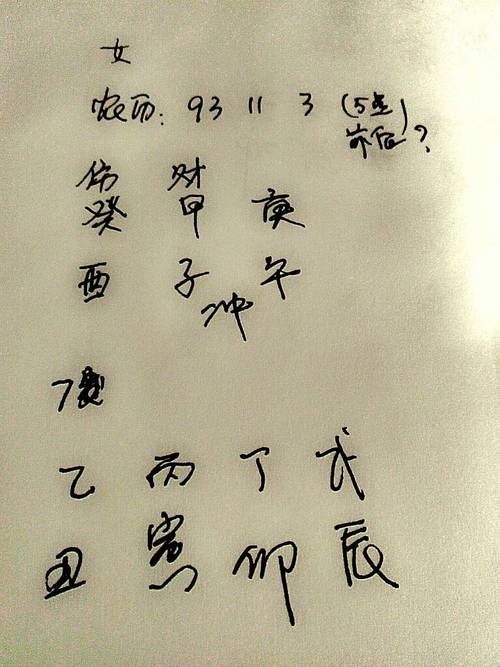 女
农历: 93 11 3 (5点
前后)?
伤 财
癸 甲 庚
酉 子 午
冲
7岁
乙 丙 丁 戊
丑 寅 卯 辰